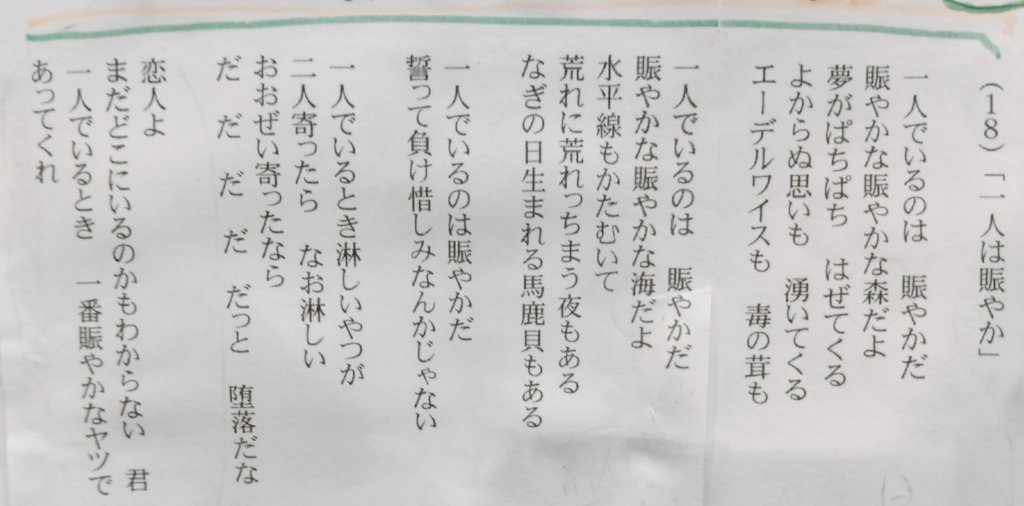 (18)「一人は賑やか」
一人でいるのは　賑やかだ
賑やかな賑やかな森だよ
夢がぱちぱち　はぜてくる
よからぬ思いも　湧いてくる
エーデルワイスも　毒の茸も
一人でいるのは　賑やかだ
賑やかな賑やかな海だよ
水平線もかたむいて
荒れに荒れっちまう夜もある
なぎの日生まれる馬鹿貝もある
一人でいるのは賑やかだ
誓って負け惜しみなんかじゃない
一人でいるとき淋しいやつが
二人寄ったら　なお淋しい
おおぜい寄ったなら
だ　だ　だ　だ　だっと　堕落だな
恋人よ
まだどこにいるのかもわからない　君
一人でいるとき　一番賑やかなヤツで
あってくれ